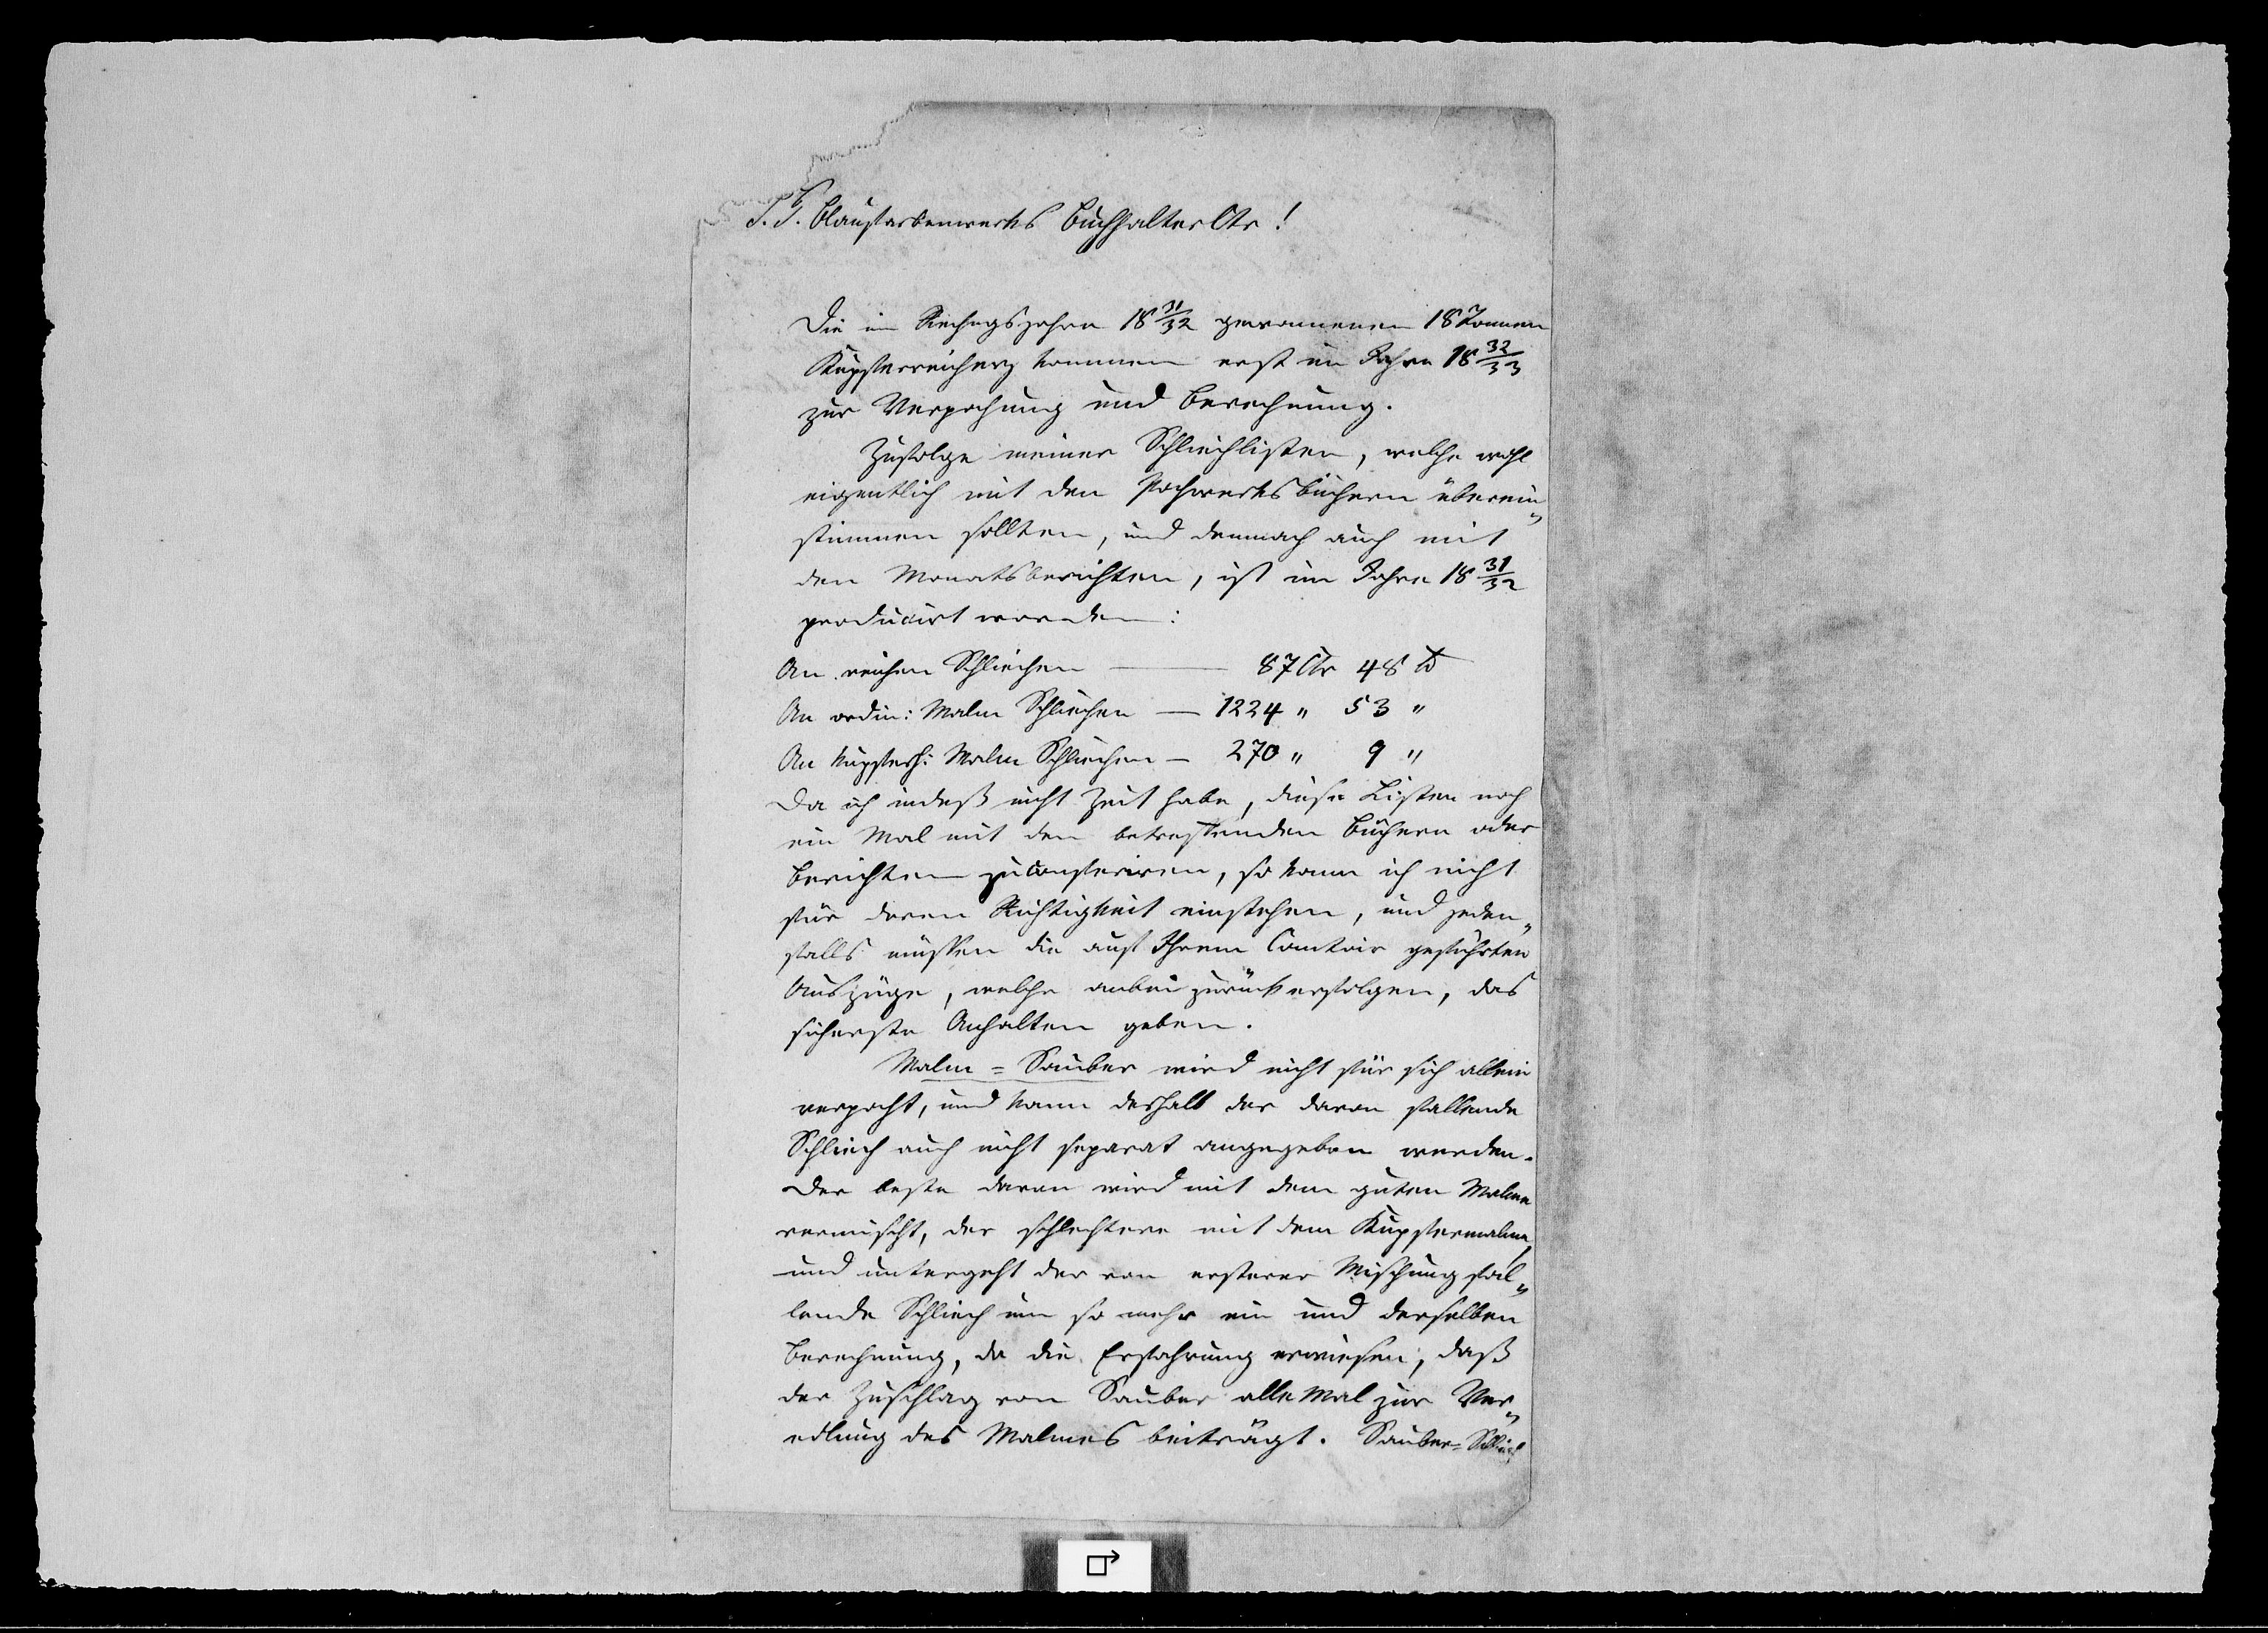 S. T. Blaufarbenwerks Buchhalter Otr!
Die im Rechngsjahre 18 31/32 gewonnenen 18 Tonnen
Kupferreicherz kommen erst im Jahre 18 32/33
zur Verpochung und Berechnung.
Zufolge meiner Schliechlisten, welche wohl
eigentlich mit den Pochwerksbüchern überein„
stimmen sollten, und demnach auch mit
den Monatsberichten, ist im Jahre 18 31/32
producirt worden:
An reichen Schliechen — 87 Ctr 48 ℔
An ordin: Malm Schliechen — 1224 " 53 "
An kupferh: Malm Schliechen — 270 " 9 "
Da ich indeß nicht Zeit habe, diese Listen noch
ein Mal mit den betreffenden Büchern oder
Berichten zu conferiren, so kann ich nicht
für deren Richtigkeit einstehen, und jeden„
falls müssen die auf Ihrem Comtoir geführten
Auszüge, welche anbei zurück erfolgen, das
sicherste Anhalten geben.
Malm = Sauber wird nicht für sich allein
verpocht, und kann deshalb der davon fallende
Schliech auch nicht separat angegeben werden.
Der beste davon wird mit dem guten Malme
vermischt, der schlechtere mit dem Kupfermalme,
und untergeht der von ersterer Mischung fal„
lende Schliech um so mehr ein und derselben
Berechnung, da die Erfahrung erwiesen, daß
der Zuschlag von Sauber alle Mal zur Ver„
edlung des Malmes beiträgt. Sauber= Schliech